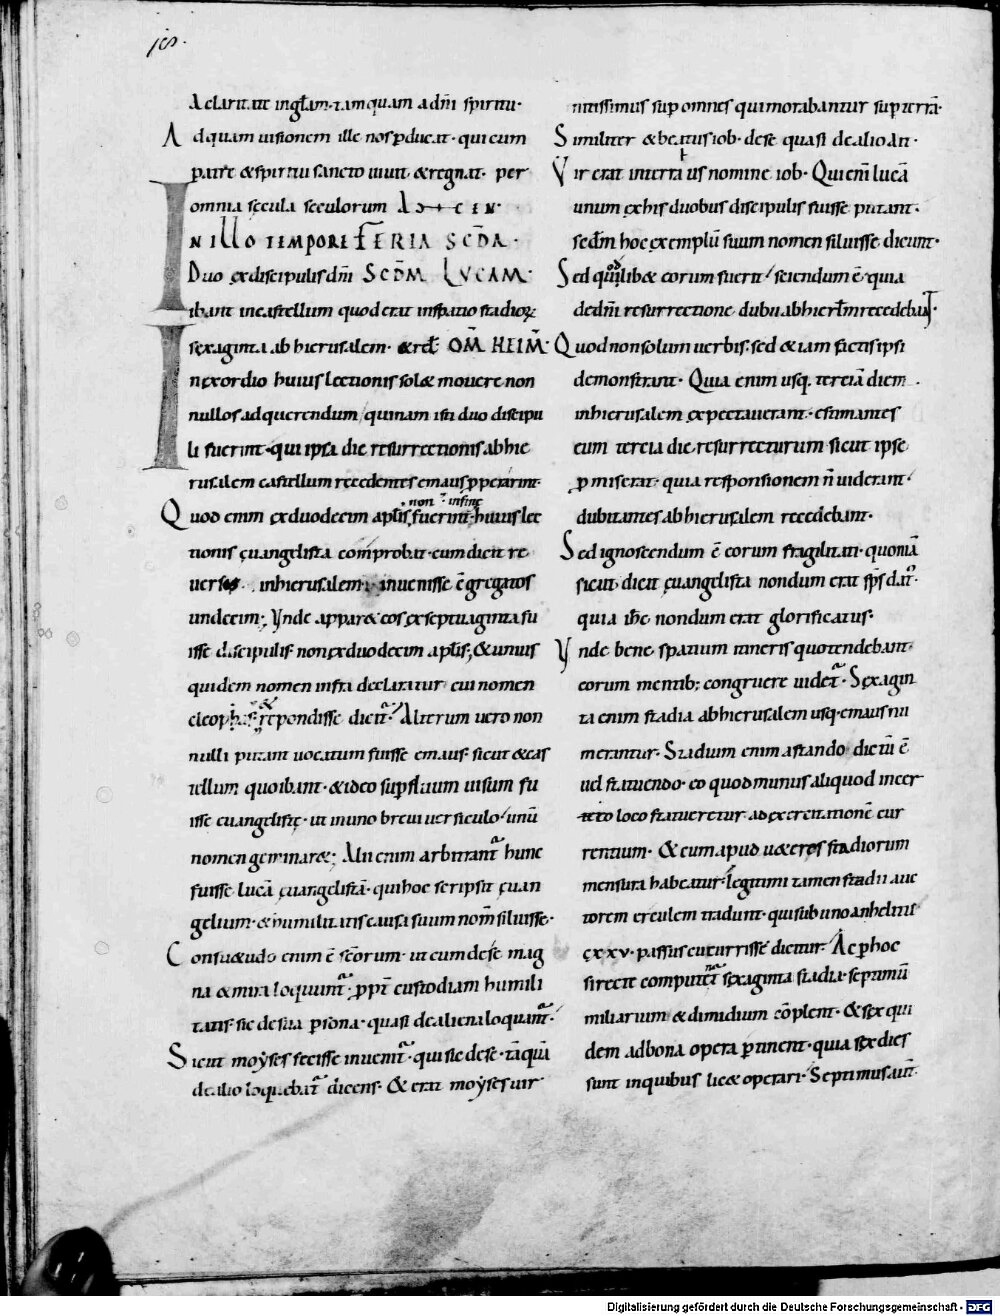 A claritate in gl̅am. tam quam a dn̅i spiritu.
Ad quam uisionem ille nos ꝑducat. qui cum
patre & spiritu sancto uiuit. & regnat. per
omnia sęcula seculorum AMEN.
IN ILLO TEMPORE FERIA SCDA.
Duo ex discipulis dn̅i SCDM LVCAM.
ibant in castellum quod erat in spatio stadioꝝ
sexaginta ab hierusalem. & rel̅. OM̅ HEIM̅.
In exordio huius lectionis solet mouere non
nullos ad querendum, quinam isti duo discipu
li fuerint. qui ipsa die resurrectionis ab hie
rusalem castellum recedentes emaus ꝓperarint.
Quod enim ex duodecim aplis, non fuerint. in fine huius lec
tionis euangelista comprobat. cum dicit re
uersos in hierusalem inuenisse c̅gregatos
undecim; Vnde apparet eos ex septuaginta fu
isse discipulis. non ex duodecim aplis, & unius
quidem nomen infra declaratur. cui nomen
cleophas. & respondisse dicit᷑. Alterum uero non
nulli putant uocatum fuisse emaus. sicut & cas
tellum quo ibant. & ideo supfluum uisum fu
isse euangelistę. ut in uno breui uersiculo unu̅
nomen geminaret; Alii enim arbitrant᷑ hunc
fuisse luca̅ euangelista̅. qui hoc scripsit euan
gelium. & humilitatis causa suum nom̅ siluisse.
Consuetudo enim e̅ sc̅orum. ut cum de se mag
na & mira loquunt᷑. ꝓpt̅ custodiam humili
tatis. sic de sua ꝑsona. quasi de aliena loquant᷑.
Sicut moyses fecisse inuenit᷑. qui sic de se. ta̅qua̅
de alio loquebat᷑ dicens. & erat moyses uir
mitissimus sup omnes qui morabantur sup terra̅.
Similiter & beatus iob. de se quasi de alio ait.
Vir erat in terra us nomine iob. Qui eni̅ luca̅
unum ex his duobus discipulis fuisse putant.
sed̅m hoc exemplu̅ suum nomen siluisse dicunt.
Sed quilibet eorum fuerit, sciendum e̅. quia
de dn̅i resurrectione dubii ab hierl̅m recedebant.
Quod non solum uerbis. sed & iam factis ipsi
demonstrant. Quia enim usq. tercia̅ diem
in hierusalem expectauerant. estimantes
eum tercia die resurrecturum sicut ipse
ꝓmiserat. quia resposionem n̅ uiderant.
dubitantes ab hierusalem recedebant.
Sed ignoscendum e̅ eorum fragilitati. quonia̅
sicut dicit euangelista nondum erat sp̅s dat᷒.
quia ih̅c nondum erat glorificatus.
Vnde bene spatium itineris quo tendebant.
eorum mentib; congruere uidet᷑. Sexagin
ta enim stadia ab hierusalem usq. emaus nu
merantur. Stadium enim a stando dictu̅ e̅
uel statuendo. eo quod munus aliquod in cer
to loco statueretur ad exercitatione̅ cur
rentium. & cum apud ueteres stadiorum
mensura habeatur. legitimi tamen stadii auc
torem erculem tradunt. qui sub uno anhelitu
cxxv. passus cucurrisse dicitur. Ac ꝑ hoc
si recte computent᷑ sexaginta stadia. septimu̅
miliarium & dimidium co̅plent. & sex qui
dem ad bona opera ꝑtinent. quia sex dies
sunt in quibus licet operari. Septimus aut̅.
Digitalisierung gefördert durch die Deutsche Forschungsgemeinschaft - DFG